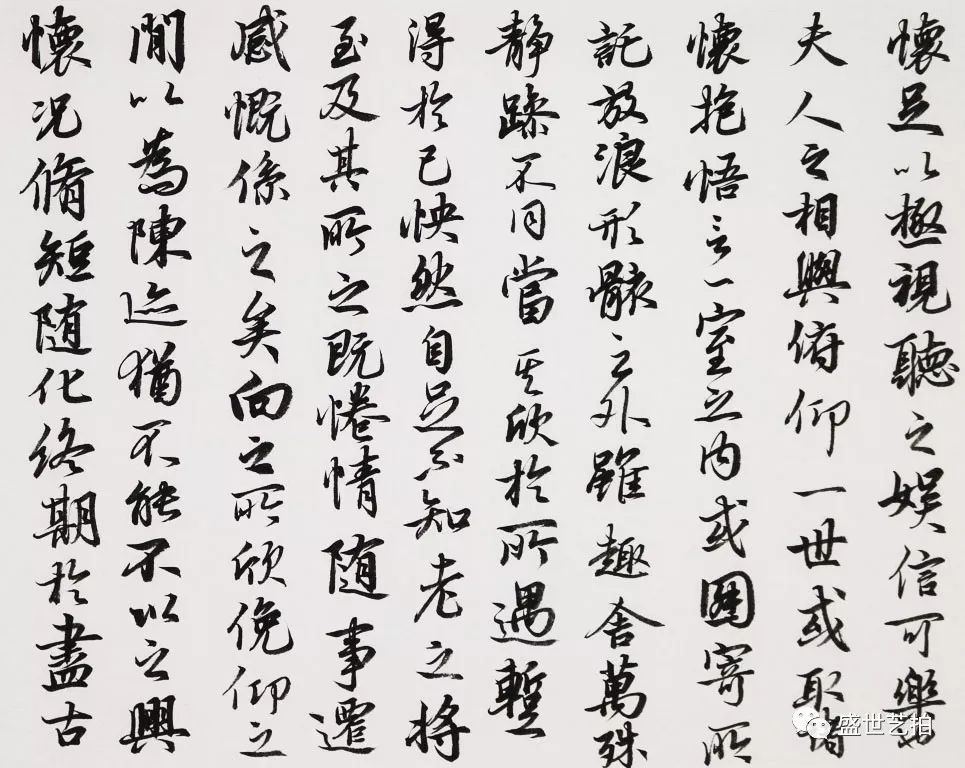 懷足以極視聽之娛信可樂也
夫人之相與俯仰一世或取諸
懷抱悟言一室之內或因寄所
託放浪形骸之外雖趣舍萬殊
靜躁不同當其欣於所遇蹔
得於己怏然自足不知老之將
至及其所之既惓情随事遷
感慨係之矣向之所欣俛仰之
閒以為陳迹猶不能不以之興
懷況脩短随化終期於盡古
盛世艺拍